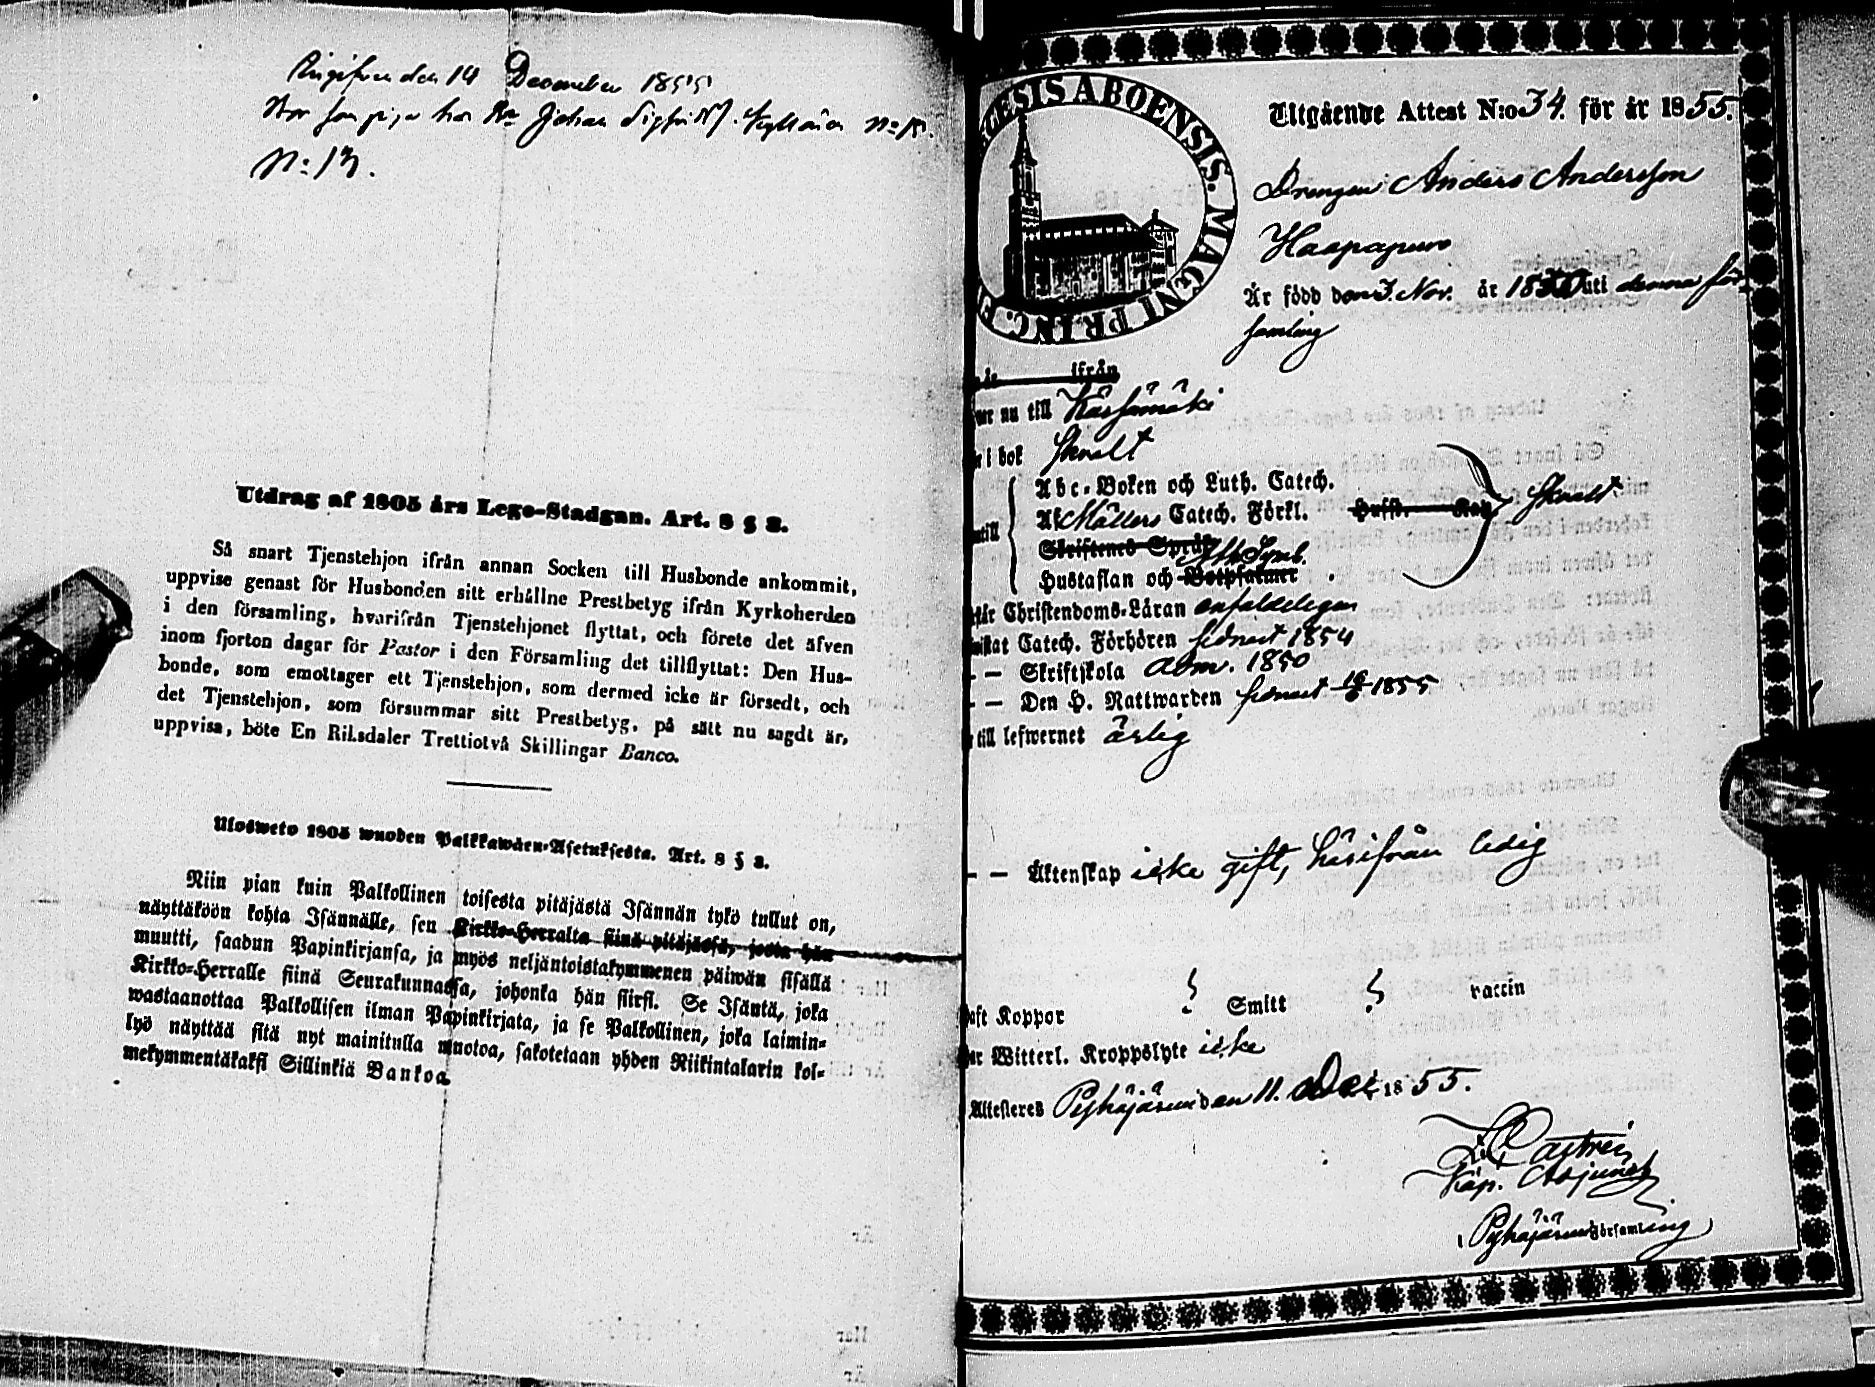 den 14 December 1855
Johan Sigfrid
N:o 13.
Utdrag af 1805 års Lego-Stadgan. Art. 8 § 2.
Så snart Tjenstehjon ifrån annan Socken till Husbonde ankommit,
uppvise genast för Husbonden sitt erhållne Prestbetyg ifrån Kyrkoherden
i den församling, hvarifrån Tjenstehjonet flyttat, och förete det äfven
inom fjorton dagar för Pastor i den Församling det tillflyttat: Den Hus-
bonde, som emottager ett Tjenstehjon, som dermed icke är försedt, och
det Tjenstehjon, som försummar sitt Prestbetyg, på sätt nu sagdt är,
uppvisa, böte En Riksdaler Trettiotvå Skillingar Banco.
Ulosweto 1805 wuoden Palkkawäen-Asetuksesta. Art. 8 § 2.
Niin pian kuin Palkollinen toisesta pitäjästä Isännän tykö tullut on,
näyttäköön kohta Isännälle, sen Kirkko-Herralta siinä pitäjässä, josta hän
muutti, saadun Papinkirjansa, ja myös neljäntoistakymmenen päiwän sisällä
Kirkko-Herralle siinä Seurakunnassa, johonka hän siirsi. Se Isäntä, joka
wastaanottaa Palkollisen ilman Papinkirjata, ja se Palkollinen, joka laimin-
lyö näyttää sitä nyt mainitulla muotoa, sakotetaan yhden Riikintalarin kol-
mekymmentäkaksi Sillinkiä Bankoa.
GESIS ABOENSIS. MAGNI PRINC. F
Utgående Attest N:o 34. för år 1855.
Drengen Anders Andersson
Haapapuro
Är född den 3. Nov. år 1830 uti denna för-
samling
år ifrån
nu till Kärsämäki
i bok
Abc-Boken och Luth. Catech.
Af Möllers Catech. Förkl. Hussb.
Skriftenes Språk Ath. Symb.
Hustaflan och Botpsalmer
Christendoms-Läran enfaldeligen
Catech. Förhören sednast 1854
— Skriftskola adm. 1850
— Den H. Nattwarden sednast 1855
till lefwernet ärlig
— — Äktenskap icke gift, härifrån ledig
haft Koppor ? Smitt ? vaccin
Har Witterl. Kroppslyte icke
Attesteres Pyhäjärvi den 11. Dec 1855.
Castrén
Kap. Adjunct
i Pyhäjärvi församling